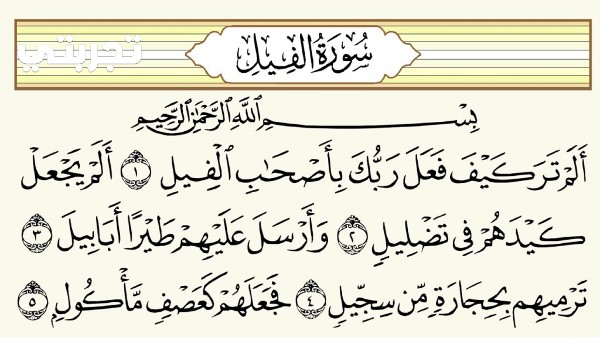 تجربتي
سُورَةُ الفِيلِ
بِسْمِ ٱللَّهِ ٱلرَّحْمَٰنِ ٱلرَّحِيمِ
أَلَمْ تَرَ كَيْفَ فَعَلَ رَبُّكَ بِأَصْحَٰبِ ٱلْفِيلِ ١ أَلَمْ يَجْعَلْ
كَيْدَهُمْ فِي تَضْلِيلٍ ٢ وَأَرْسَلَ عَلَيْهِمْ طَيْرًا أَبَابِيلَ ٣
تَرْمِيهِم بِحِجَارَةٍ مِّن سِجِّيلٍ ٤ فَجَعَلَهُمْ كَعَصْفٍ مَّأْكُولٍ ٥